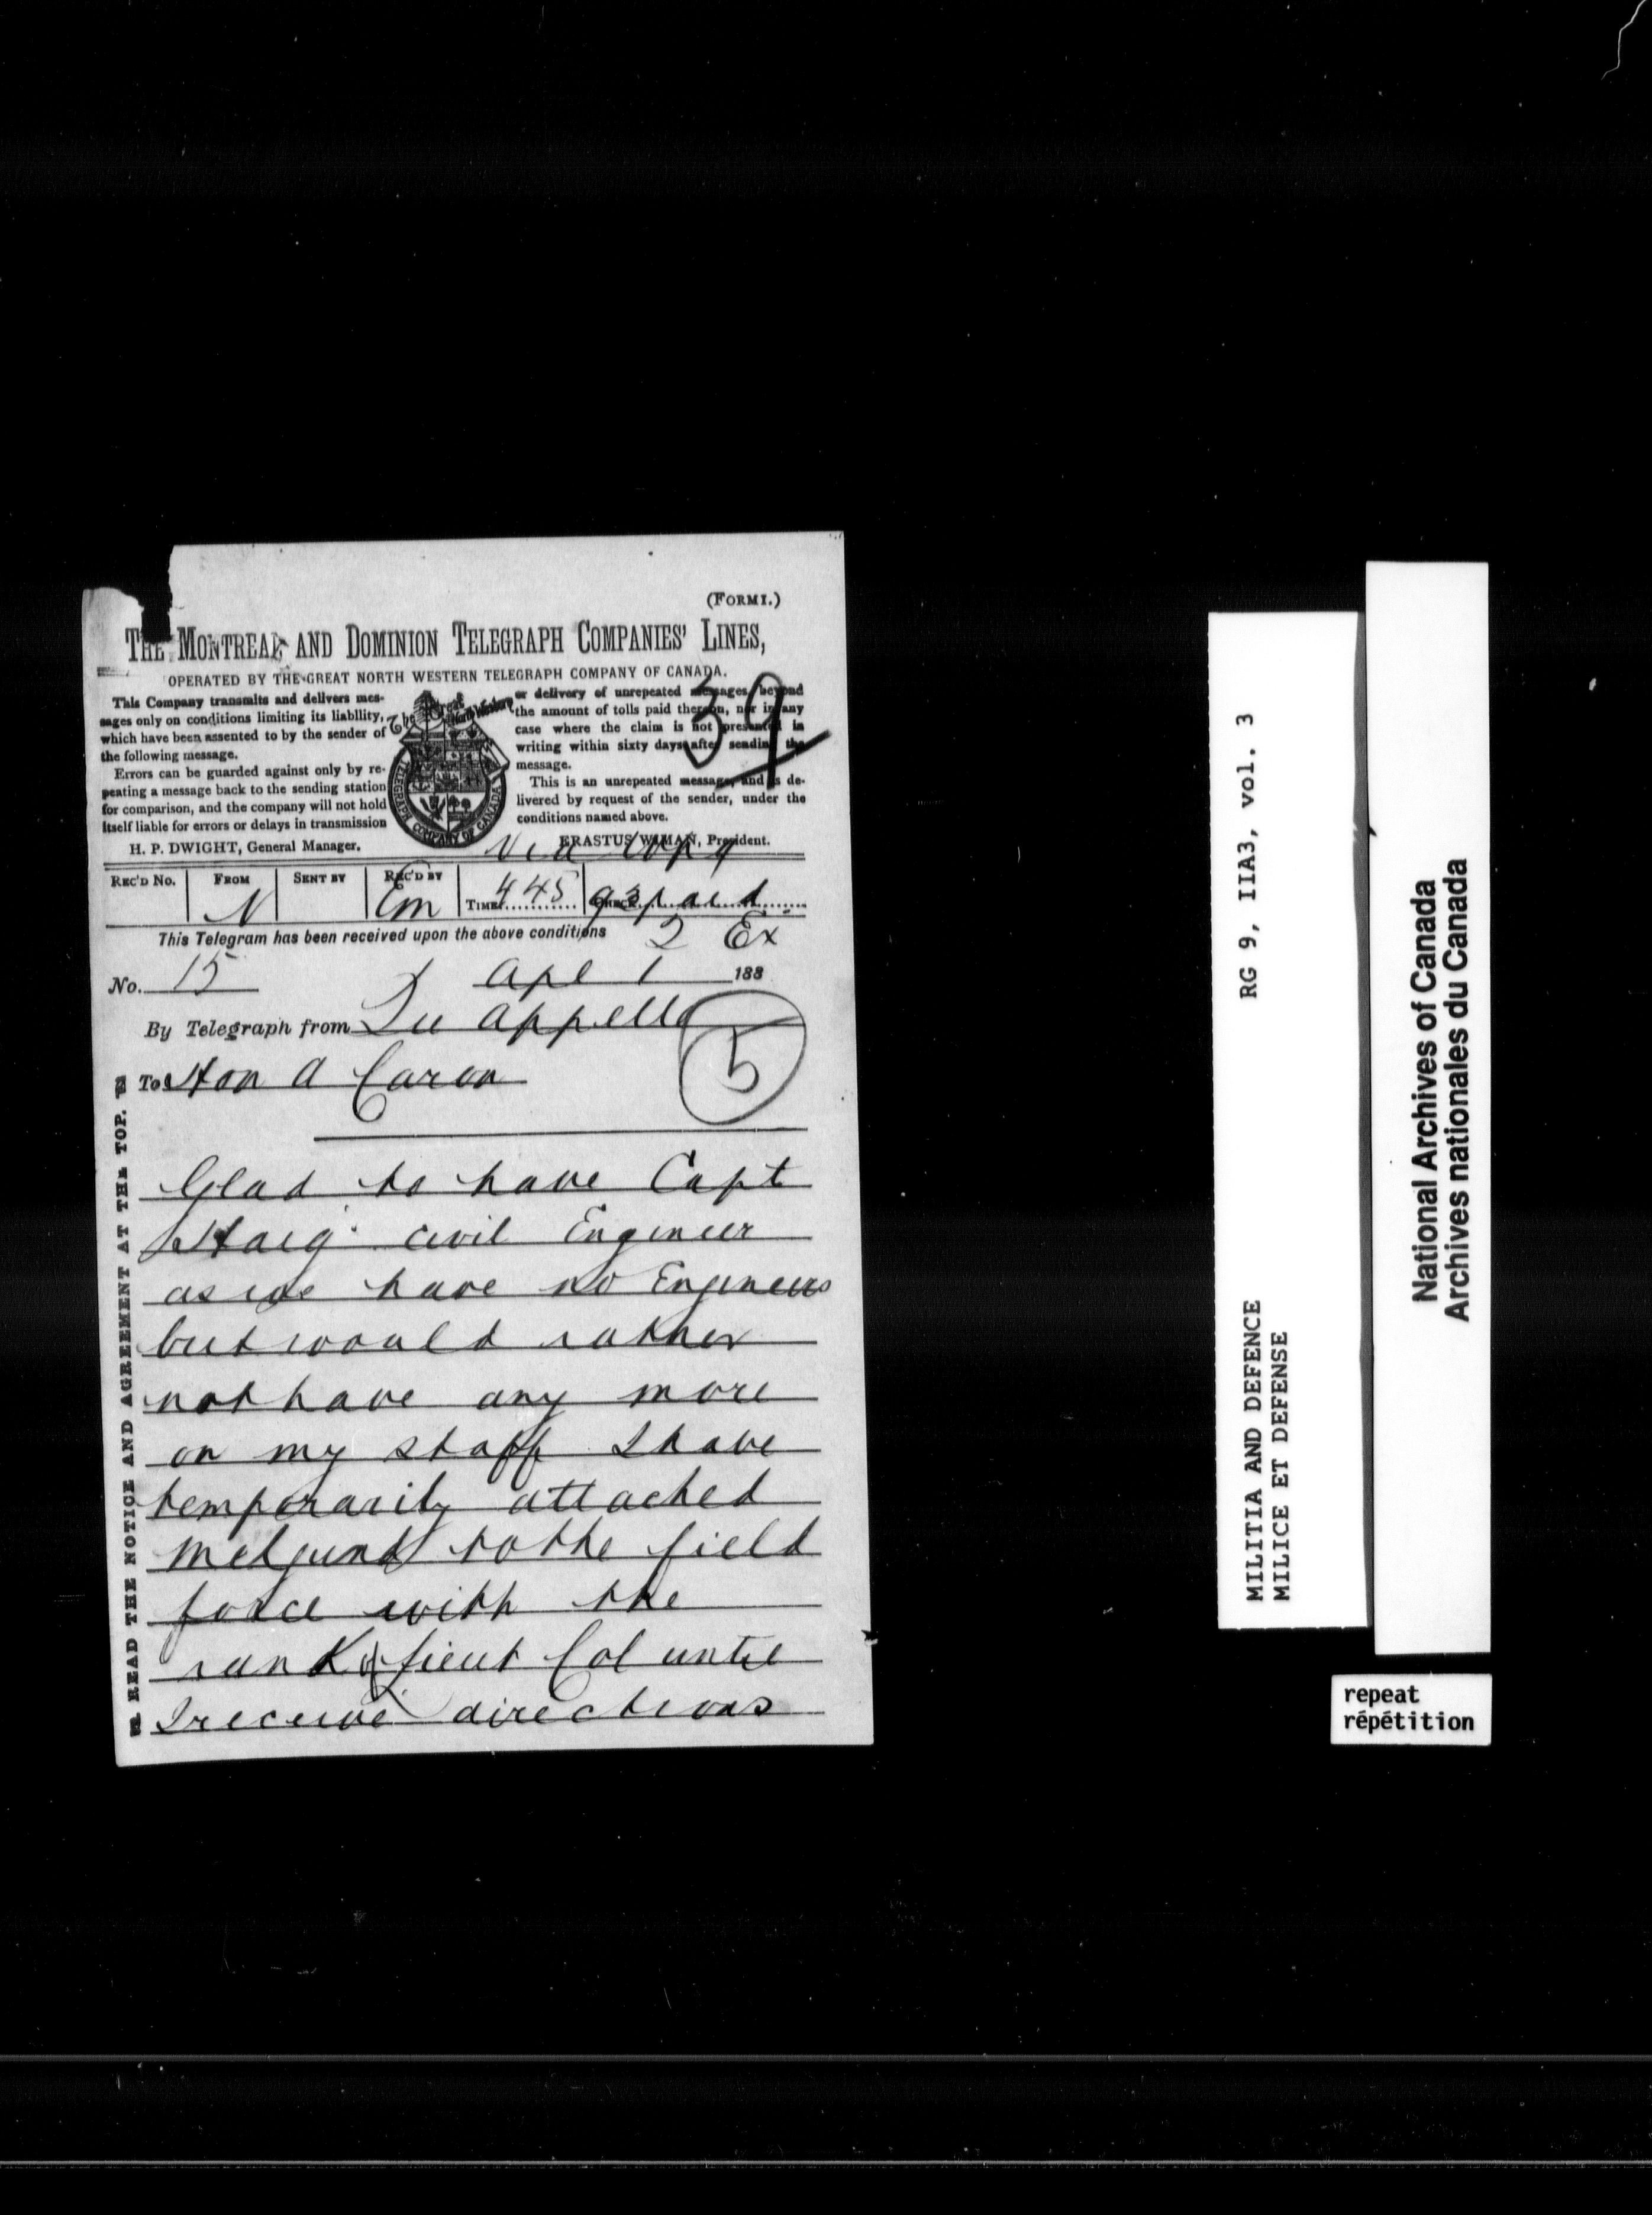 (FORM 1.)
THE MONTREAL AND DOMINION TELEGRAPH COMPANIES' LINES,
OPERATED BY THE GREAT NORTH WESTERN TELEGRAPH COMPANY OF CANADA.
This Company transmits and delivers mes-
sages only on conditions limiting its liability,
which have been assented to by the sender of
the following message.
Errors can be guarded against only by re-
peating a message back to the sending station
for comparison, and the company will not hold
itself liable for errors or delays in transmission
or delivery of unrepeated messages, beyond
the amount of tolls paid thereon, nor in any
case where the claim is not presented in
writing within sixty days after sending the
message.
This is an unrepeated message, and is de-
livered by request of the sender, under the
conditions named above.
The Great North Western
TELEGRAPH COMPANY OF CANADA
39
H. P. DWIGHT, General Manager.
ERASTUS WIMAN, President.
Via
REC'D No. FROM SENT BY REC'D BY TIME CHECK
N Em 445 93 paid
This Telegram has been received upon the above conditions 2 Ex
No. 15 Apl 1 188
By Telegraph from Qu Appelle
5
To Hon A Caron
Glad to have Capt
Haig civil Engineer
as we have no Engineers
but would rather
not have any more
on my staff I have
temporarily attached
Melgund to the field
force with the
rank of Lieut Col until
I receive directions
READ THE NOTICE AND AGREEMENT AT THE TOP.
RG 9, IIA3, vol. 3
MILITIA AND DEFENCE
MILICE ET DEFENSE
National Archives of Canada
Archives nationales du Canada
repeat
répétition